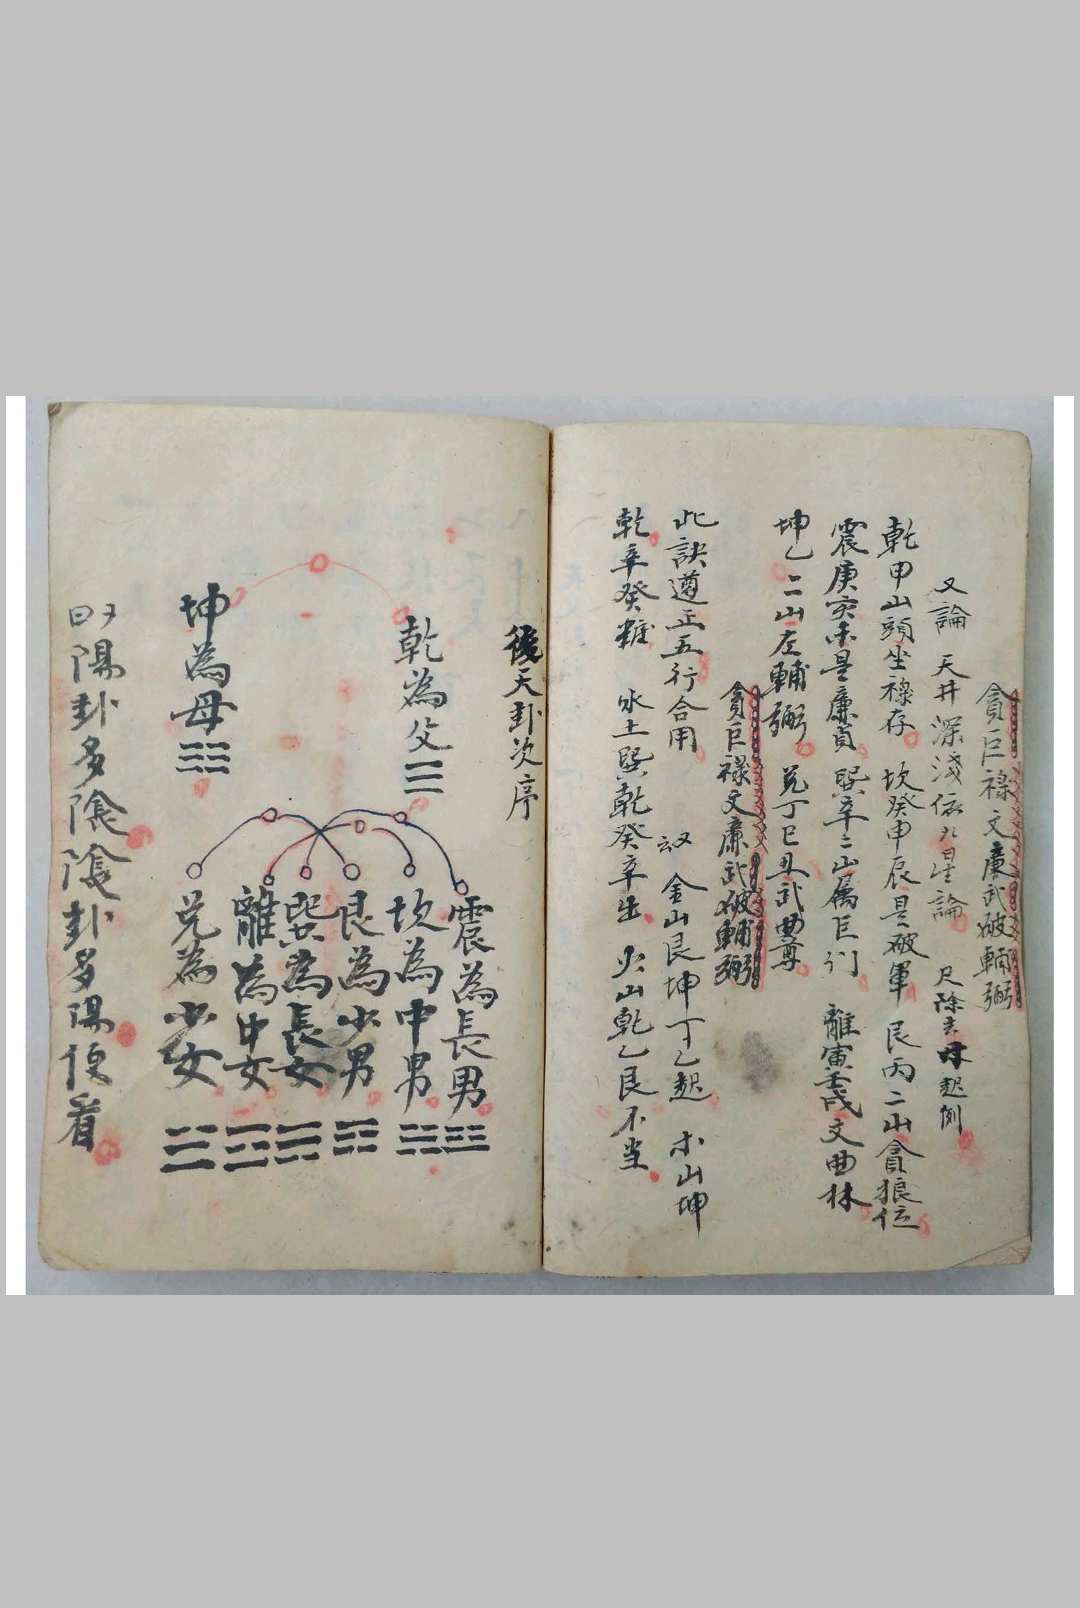 貪巨祿文廉武破輔弼
又論 天井深淺依九星論 尺除去 起例
乾甲山頭坐祿存 坎癸申辰是破軍 艮丙二山貪狼位
震庚亥未是廉貞 巽辛二山屬巨门 離寅壬戌文曲林
坤乙二山左輔弼 兌丁巳丑武曲尊
貪巨祿文廉武破輔弼
此訣遵正五行合用 又 金山艮坤丁乙起 木山坤
乾辛癸 水土巽乾癸辛出 火山乾乙艮不当
後天卦次序
乾為父☰
坤為母☷
震為長男☳
坎為中男☵
艮為少男☶
巽為長女☴
離為中女☲
兌為少女☱
陽卦多陰陰卦多陽便看